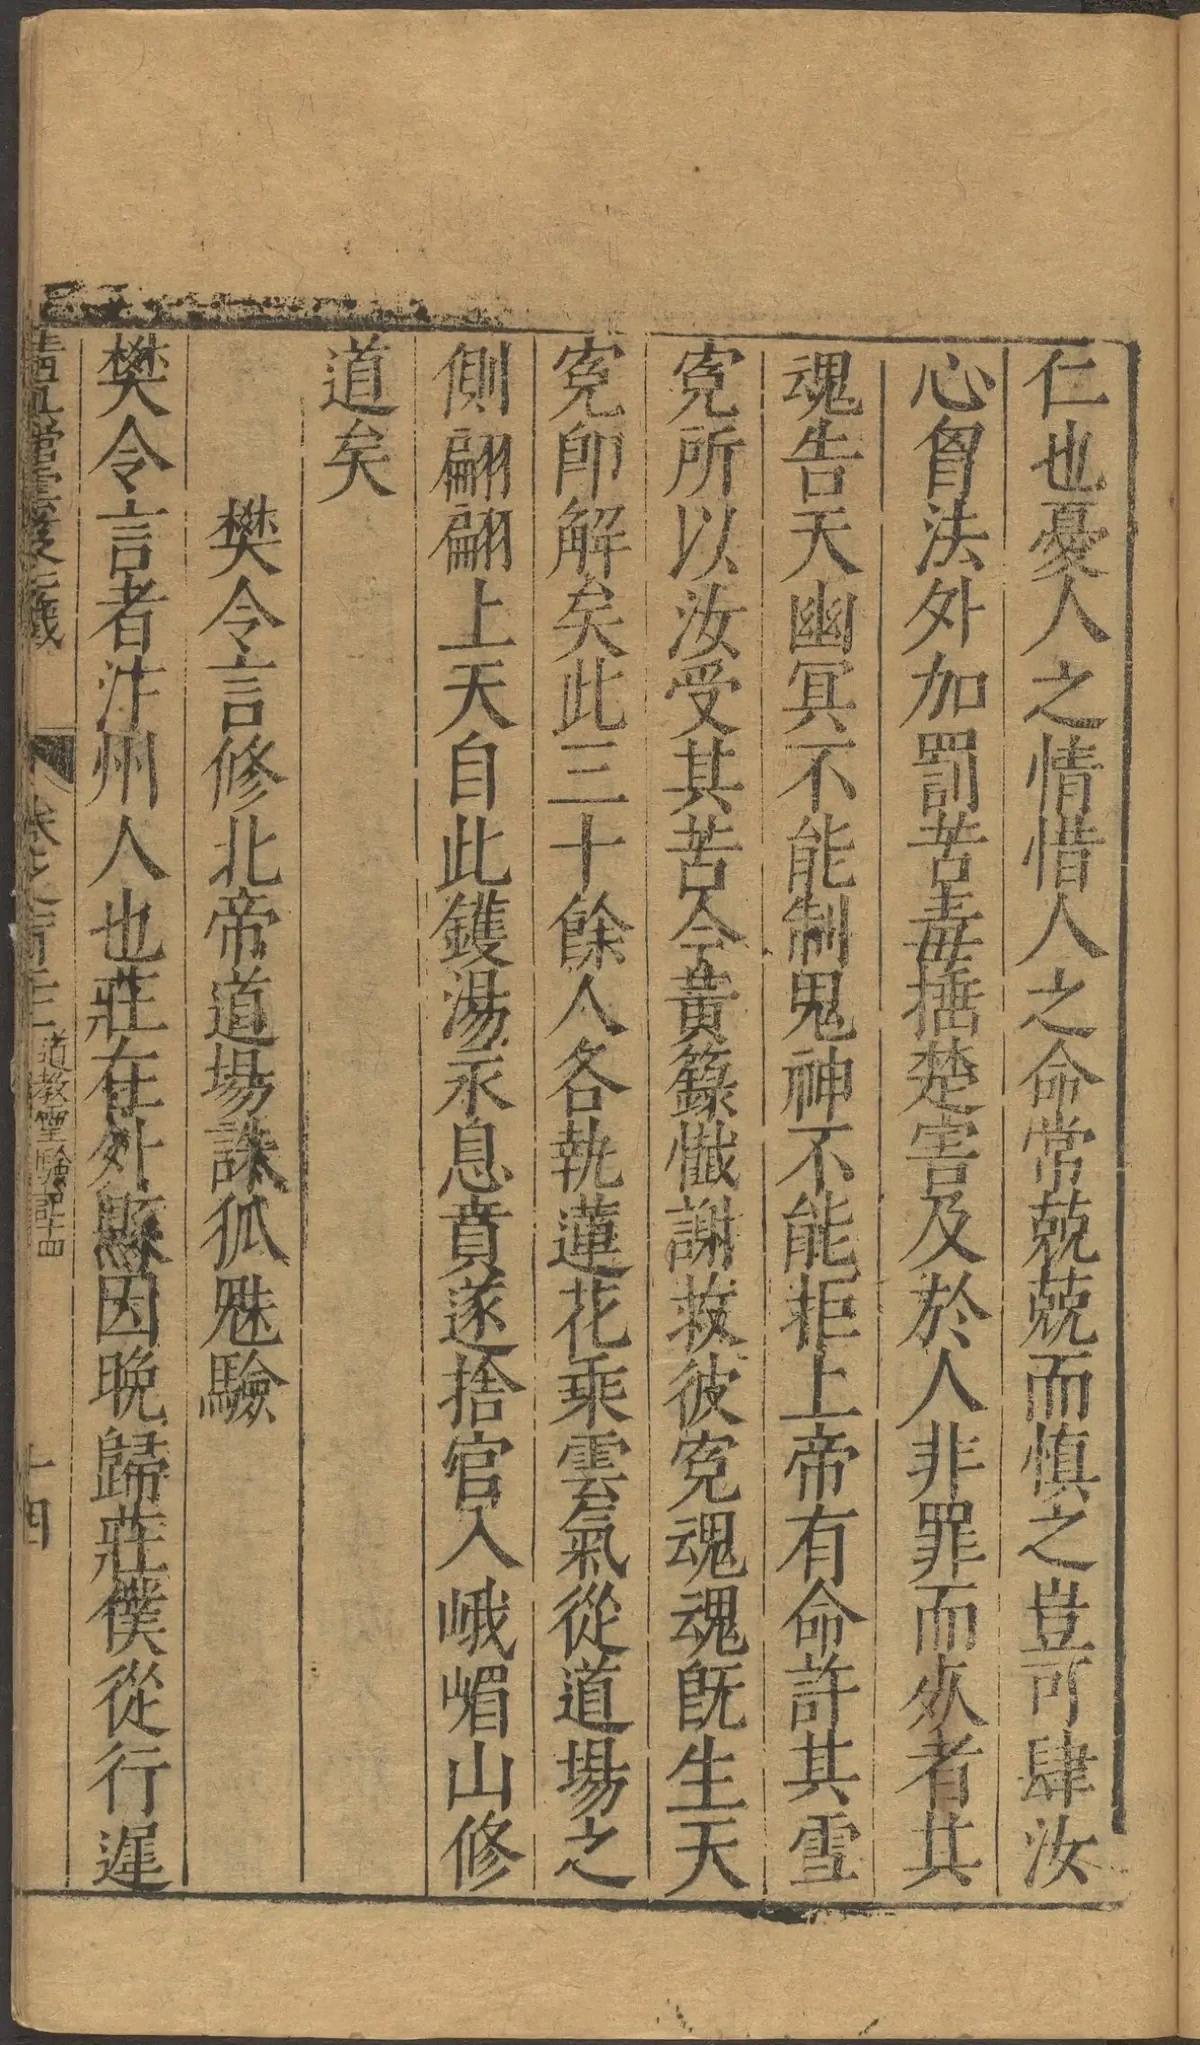 仁也憂人之情惜人之命常兢兢而慎之豈可肆汝
心胷法外加罰苦毒捶楚害及於人非罪而夭者其
魂告天幽冥不能制鬼神不能拒上帝有命許其雪
寃所以汝受其苦今黃籙懺謝救彼寃魂魂旣生天
寃卽解矣此三十餘人各執蓮花乘雲氣從道場之
側翩翩上天自此鑊湯永息賁遂捨官入峨嵋山修
道矣
樊令言修北帝道場誅狐魅驗
樊令言者汴州人也莊在外縣因晚歸莊僕從行遲
道教靈驗記十四
十四